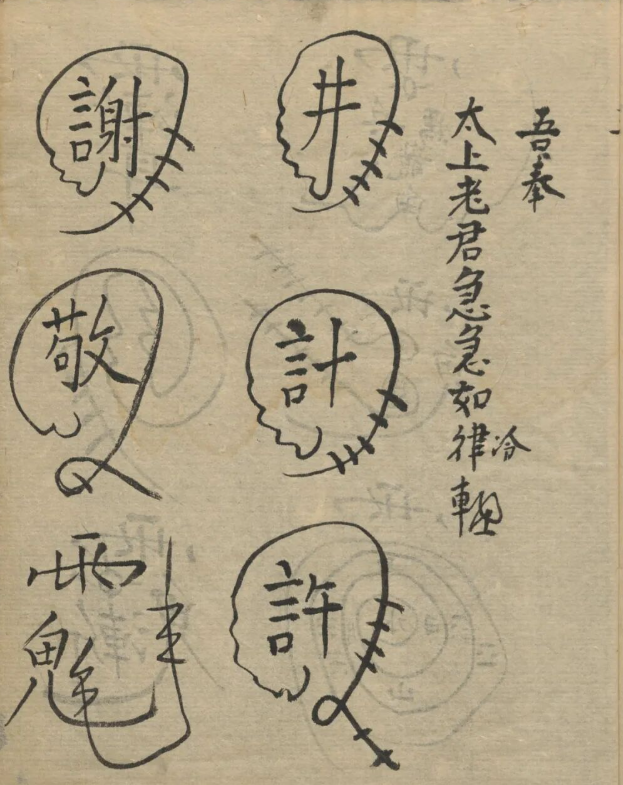 吾奉
太上老君急急如律
冷
井
計
許
謝
敬